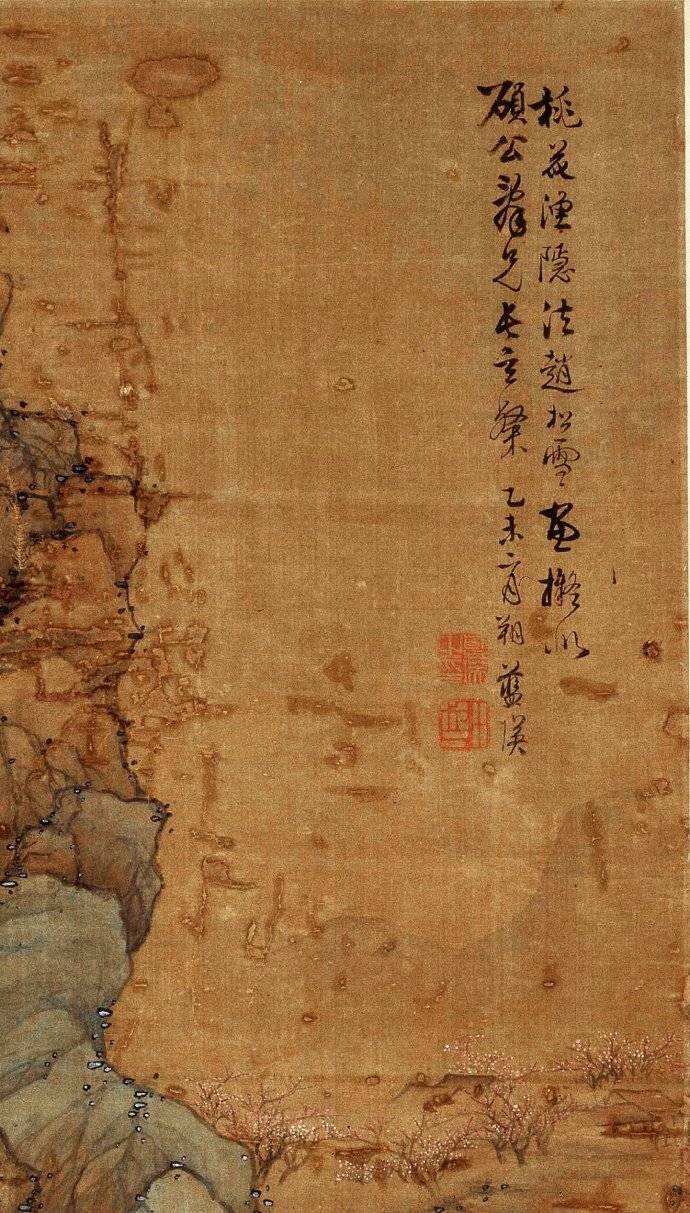 桃花漁隱法趙松雪畫擬似
碩公辭兄長粲乙未二月朔藍瑛